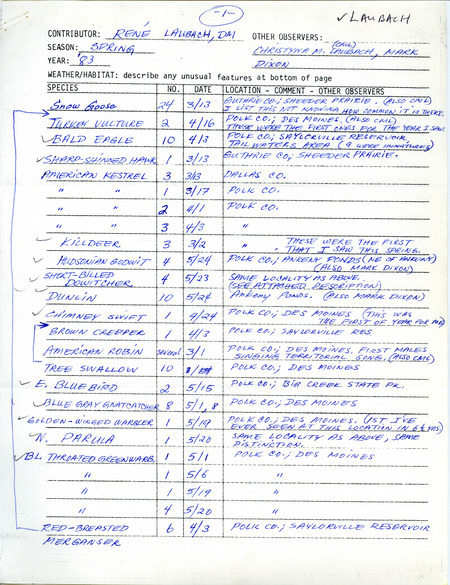 -1-
✓ LAUBACH
CONTRIBUTOR: RENÉ LAUBACH, DM OTHER OBSERVERS: (CML)
SEASON: SPRING CHRISTYNA M. LAUBACH, MARK
YEAR: 83 DIXON
WEATHER/HABITAT: describe any unusual features at bottom of page
SPECIES NO. DATE LOCATION - COMMENT - OTHER OBSERVERS
Snow Goose 24 3/13 GUTHRIE CO; SHEEDER PRAIRIE. (ALSO CML)
I LIST THIS NOT KNOWING HOW COMMON IT IS THERE.
TURKEY VULTURE 2 4/16 POLK CO; DES MOINES (ALSO CML)
THESE WERE THE FIRST ONES FOR THE YEAR I SAW.
✓ BALD EAGLE 10 4/3 POLK CO; SAYLORVILLE RESERVOIR
TAILWATERS AREA. (9 WERE IMMATURES)
✓ SHARP-SHINNED HAWK 1 3/13 GUTHRIE CO; SHEEDER PRAIRIE.
AMERICAN KESTREL 3 3/13 DALLAS CO.
" " 1 3/17 POLK CO.
" " 2 4/1 POLK CO.
" " 3 4/3 "
✓ KILLDEER 3 3/2 " THESE WERE THE FIRST
THAT I SAW THIS SPRING.
✓ HUDSONIAN GODWIT 4 5/24 POLK CO; ANKENY PONDS (NE OF ANKENY)
(ALSO MARK DIXON)
✓ SHORT-BILLED
DOWITCHER 4 5/23 SAME LOCALITY AS ABOVE.
(SEE ATTACHED DESCRIPTION)
✓ DUNLIN 10 5/24 ANKENY PONDS. (ALSO MARK DIXON)
✓ CHIMNEY SWIFT 1 4/24 POLK CO; DES MOINES (THIS WAS
THE FIRST OF YEAR FOR ME)
BROWN CREEPER 1 4/3 POLK CO; SAYLORVILLE RES.
AMERICAN ROBIN several 3/1 POLK CO; DES MOINES, FIRST MALES
SINGING TERRITORIAL SONG. (ALSO CML)
TREE SWALLOW 10 POLK CO; DES MOINES
✓ E. BLUEBIRD 2 5/15 POLK CO; BIG CREEK STATE PK.
✓ BLUE GRAY GNATCATCHER 8 5/1, 8 POLK CO; DES MOINES
✓ GOLDEN-WINGED WARBLER 1 5/19 POLK CO; DES MOINES. (1ST I'VE
EVER SEEN AT THIS LOCATION IN 6½ YRS)
✓ N. PARULA 1 5/20 SAME LOCALITY AS ABOVE, SAME
DISTINCTION.
✓ BL. THROATED GREEN WARB. 1 5/1 POLK CO; DES MOINES
" 1 5/6 "
" 1 5/19 "
" 4 5/20 "
RED-BREASTED 6 4/3 POLK CO; SAYLORVILLE RESERVOIR
MERGANSER